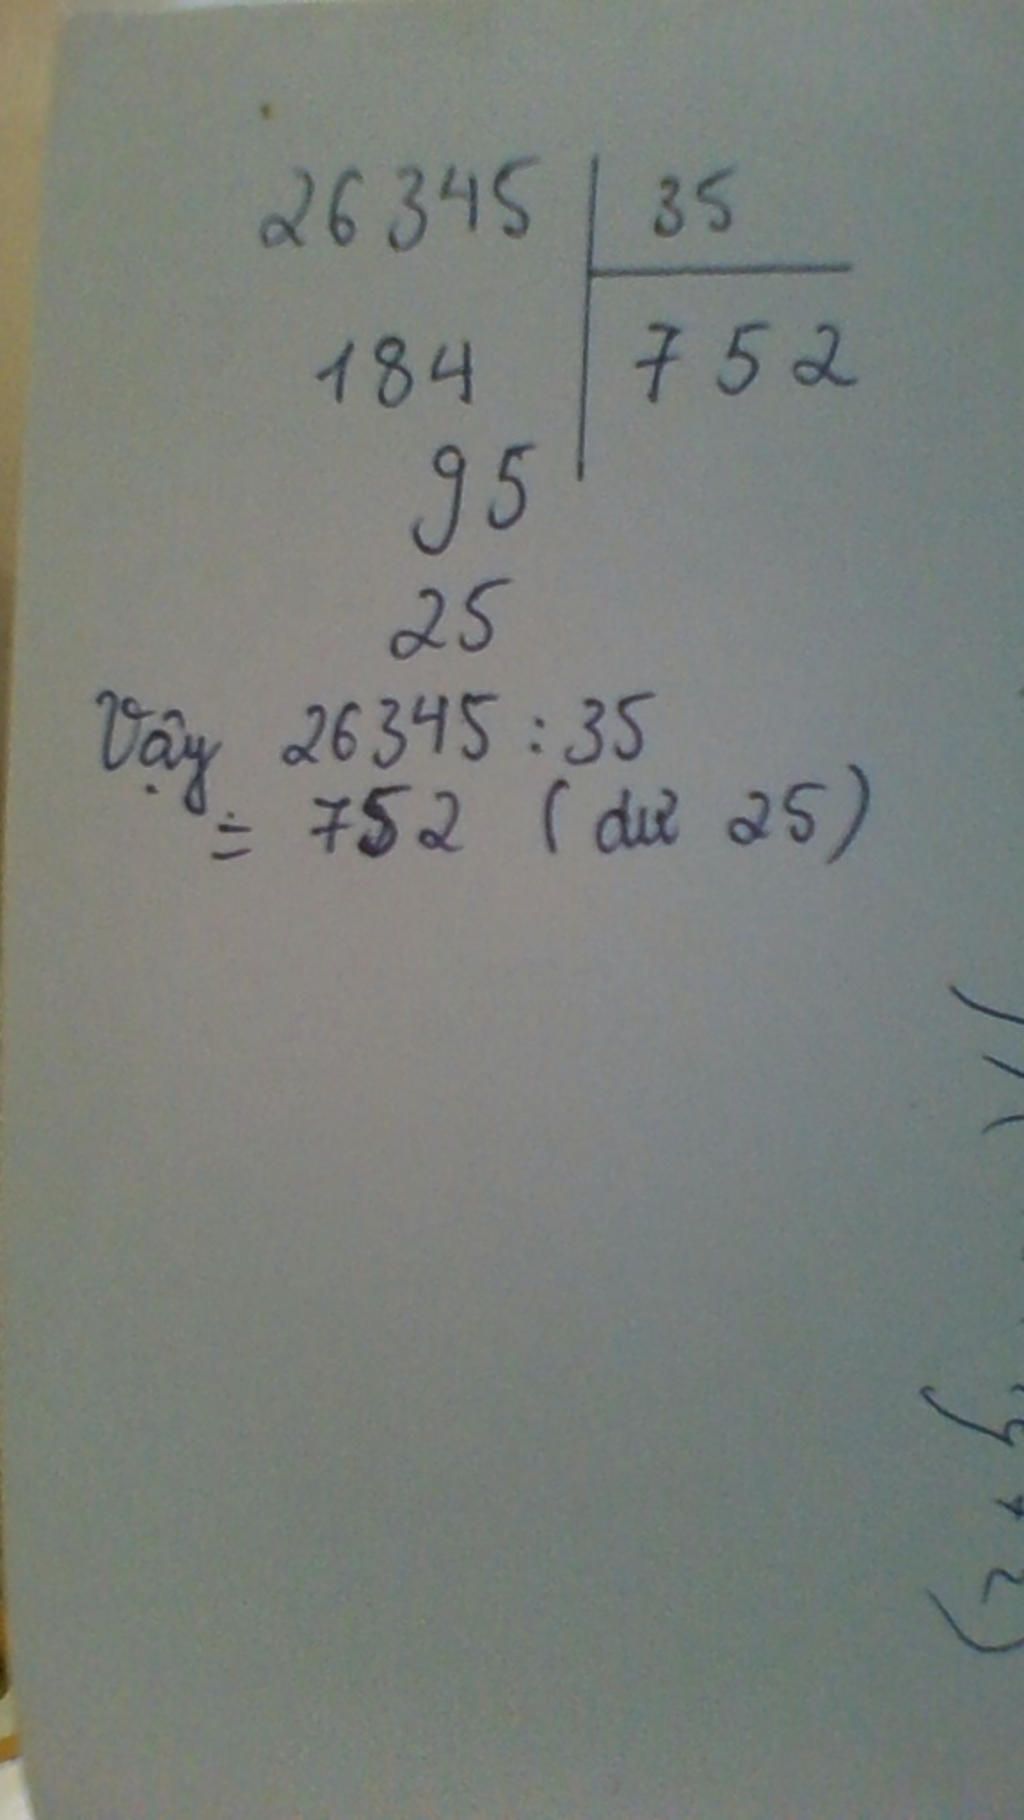 26345 35
184 752
95
25
Vậy 26345 : 35
= 752 ( dư 25)